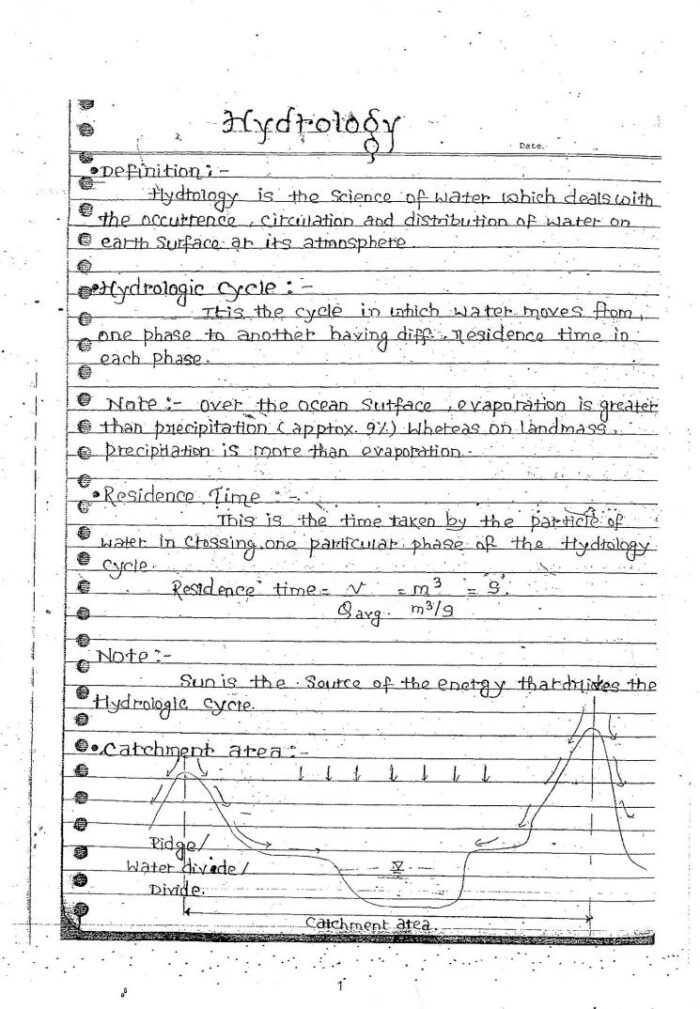 Hydrology
Date.
• Definition :-
Hydrology is the science of water which deals with
the occurrence, circulation and distribution of water on
earth surface ar its atmosphere
• Hydrologic cycle :-
It is the cycle in which water moves from,
one phase to another having diff. Residence time in
each phase.
Note :- over the ocean surface, evaporation is greater
than precipitation (approx. 9%) whereas on landmass,
precipitation is more than evaporation.
• Residence Time :-
This is the time taken by the particle of
water in crossing one particular phase of the Hydrology
cycle.
Residence time = V = m³ = 's'.
Qavg. m³/s
Note :-
Sun is the source of the energy that drives the
Hydrologic cycle.
• Catchment area :-
Ridge/
Water divide/
Divide.
Catchment area.
1